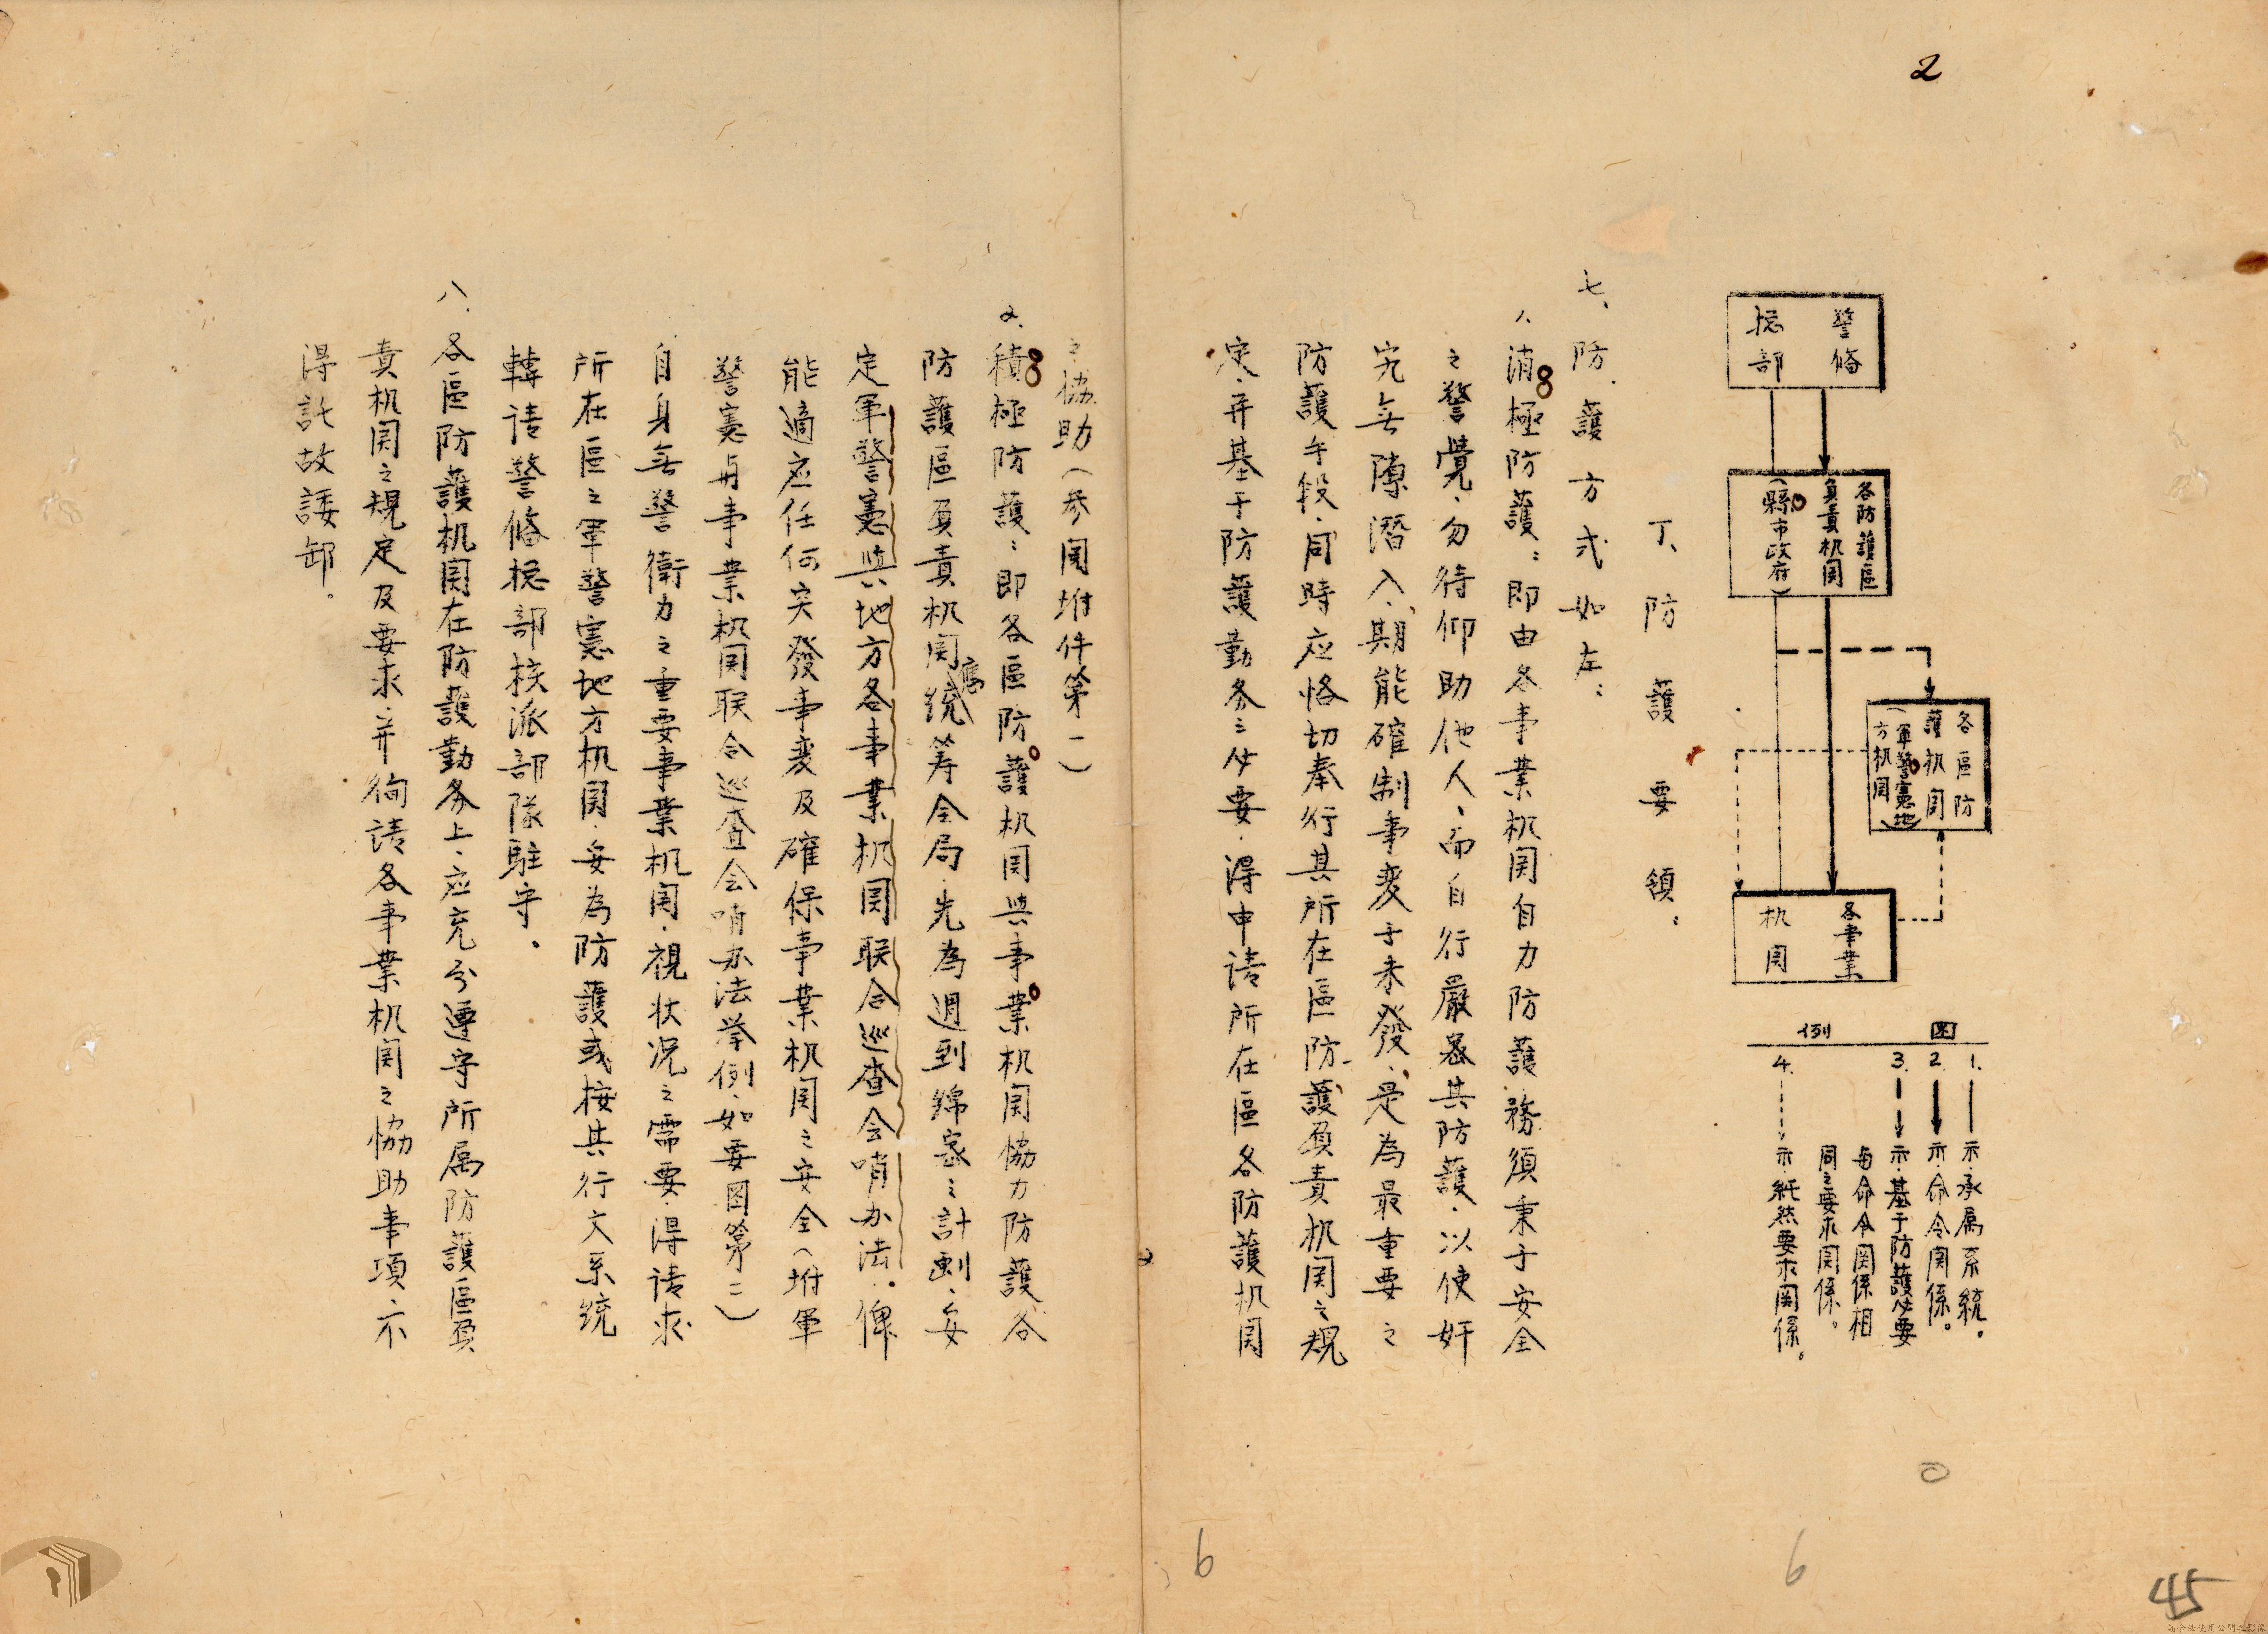 2
警備
總部
各防護區
負責机関
（縣市政府）
各區防
護机関
（軍警憲地
方机関）
各事業
机関
図例
1. 示承属系統。
2. 示命令関係。
3. 示基于防護必要
与命令関係相
同之要求関係。
4. 示純然要求関係。
丁、防護要領：
七、防護方式如左：
1、消極防護：即由各事業机関自力防護務須秉于安全
之警覺、勿待仰助他人、而自行嚴密其防護、以使奸
宄無隙潛入、期能確制事変于未發、是為最重要之
防護手段、同時应恪切奉行其所在區防護負責机関之規
定、并基于防護勤务之必要、得申请所在區各防護机関
之協助（参閱附件第一）
2、積極防護：即各區防護机関與事業机関協力防護各
防護區負責机関應統筹全局、先為週到綿密之計劃、妥
定軍警憲與地方各事業机関联合巡查会哨办法、俾
能適应任何突發事変及確保事業机関之安全（附軍
警憲與事業机関联合巡查会哨办法举例、如要図第二）
自身無警衛力之重要事業机関、視状况之需要、得请求
所在區之軍警憲地方机関、妥為防護或按其行文系统
轉请警備總部核派部隊駐守。
八、各區防護机関在防護勤务上、应充分遵守所属防護區負
責机関之規定及要求、并徇请各事業机関之協助事項、不
得託故諉卸。
6
6
45